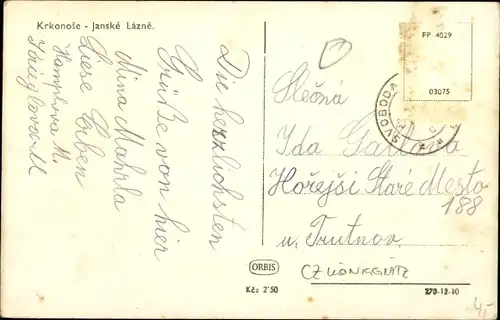 Krkonoše - Janské Lázně.
Die herzlichsten
Grüße von hier
Mina
Liese Erben
FP 4029
03075
SVOBODA
Slečna
Ida
Hořejši Staré Mesto
188
u. Trutnov
CZ KÖNIGGRÄTZ
ORBIS
Kčs 2'50
270-12-10
4,-